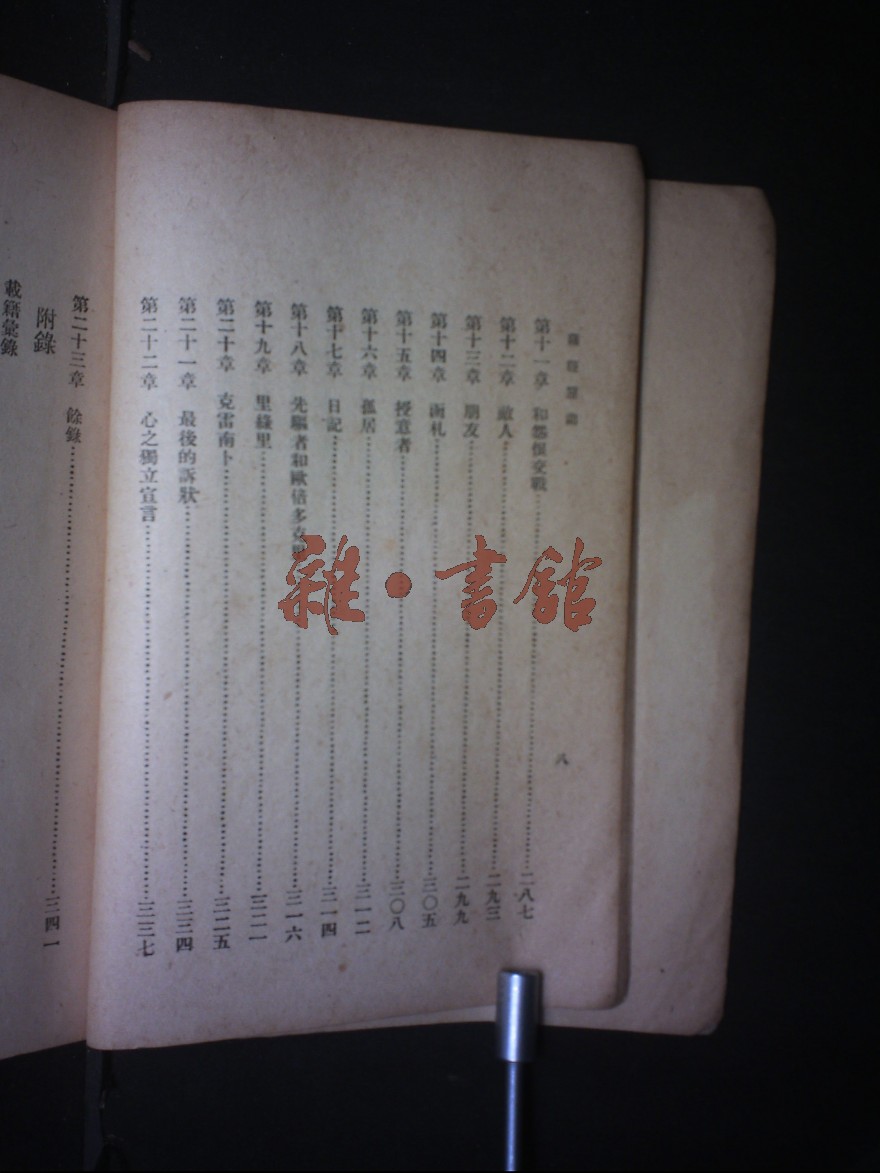 第十一章 和怨恨交戰 二八七
第十二章 敵人 二九三
第十三章 朋友 二九九
第十四章 函札 三〇五
第十五章 授意者 三〇八
第十六章 孤居 三一二
第十七章 日記 三一四
第十八章 先驅者和歐倍多克 三一六
第十九章 里綠里 三二一
第二十章 克雷南卜 三二五
第二十一章 最後的訴狀 三三四
第二十二章 心之獨立宣言 三三七
八
第二十三章 餘錄 三四一
附錄
載籍彙錄
雜·書館